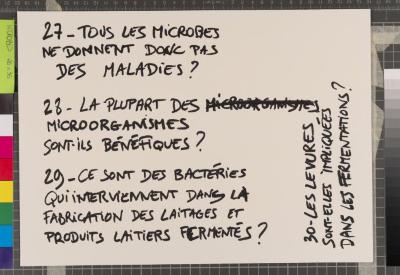 27_ TOUS LES MICROBES
NE DONNENT DONC PAS
DES MALADIES ?
28_ LA PLUPART DES MICROORGANISMES
MICROORGANISMES
SONT-ILS BÉNÉFIQUES ?
29_ CE SONT DES BACTÉRIES
QUI INTERVIENNENT DANS LA
FABRICATION DES LAITAGES ET
PRODUITS LAITIERS FERMENTÉS ?
30-LES LEVURES
SONT-ELLES IMPLIQUÉES
DANS LES FERMENTATIONS ?